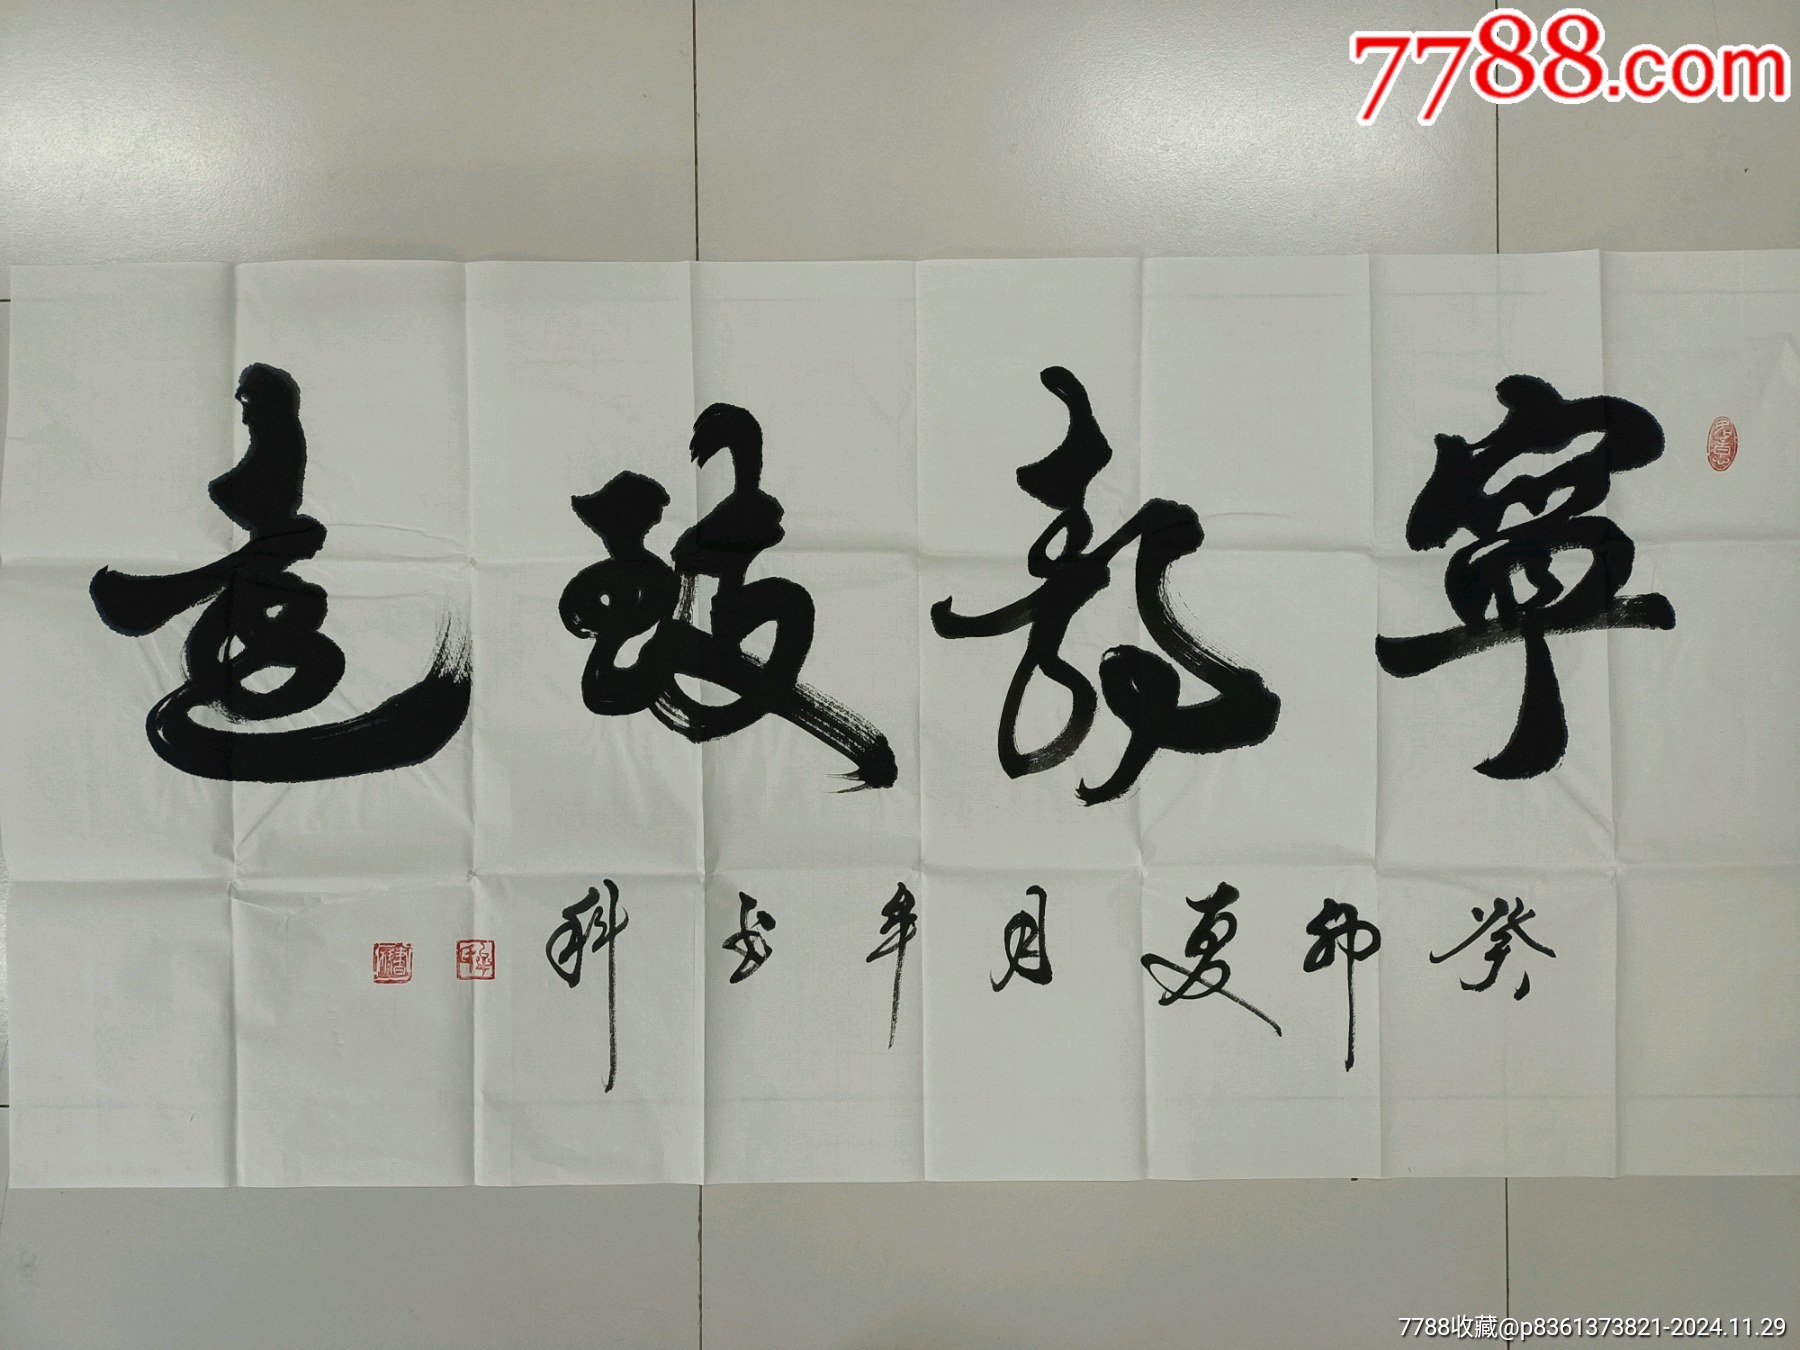 7788.com
寧静致遠
癸卯夏月年书科
7788收藏@p8361373821-2024.11.29